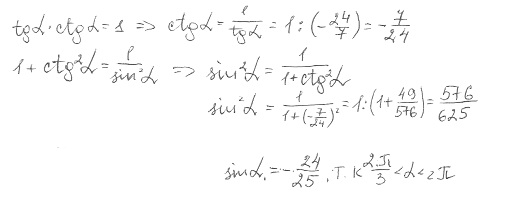 tgα·ctgα=1 => ctgα=1/tgα=1:(-24/7)=-7/24
1+ctg²α=1/sin²α => sin²α=1/(1+ctg²α)
sin²α=1/(1+(-7/24)²)=1:(1+49/576)=576/625
sinα.=-24/25, т.к 2.π/3<α<2π